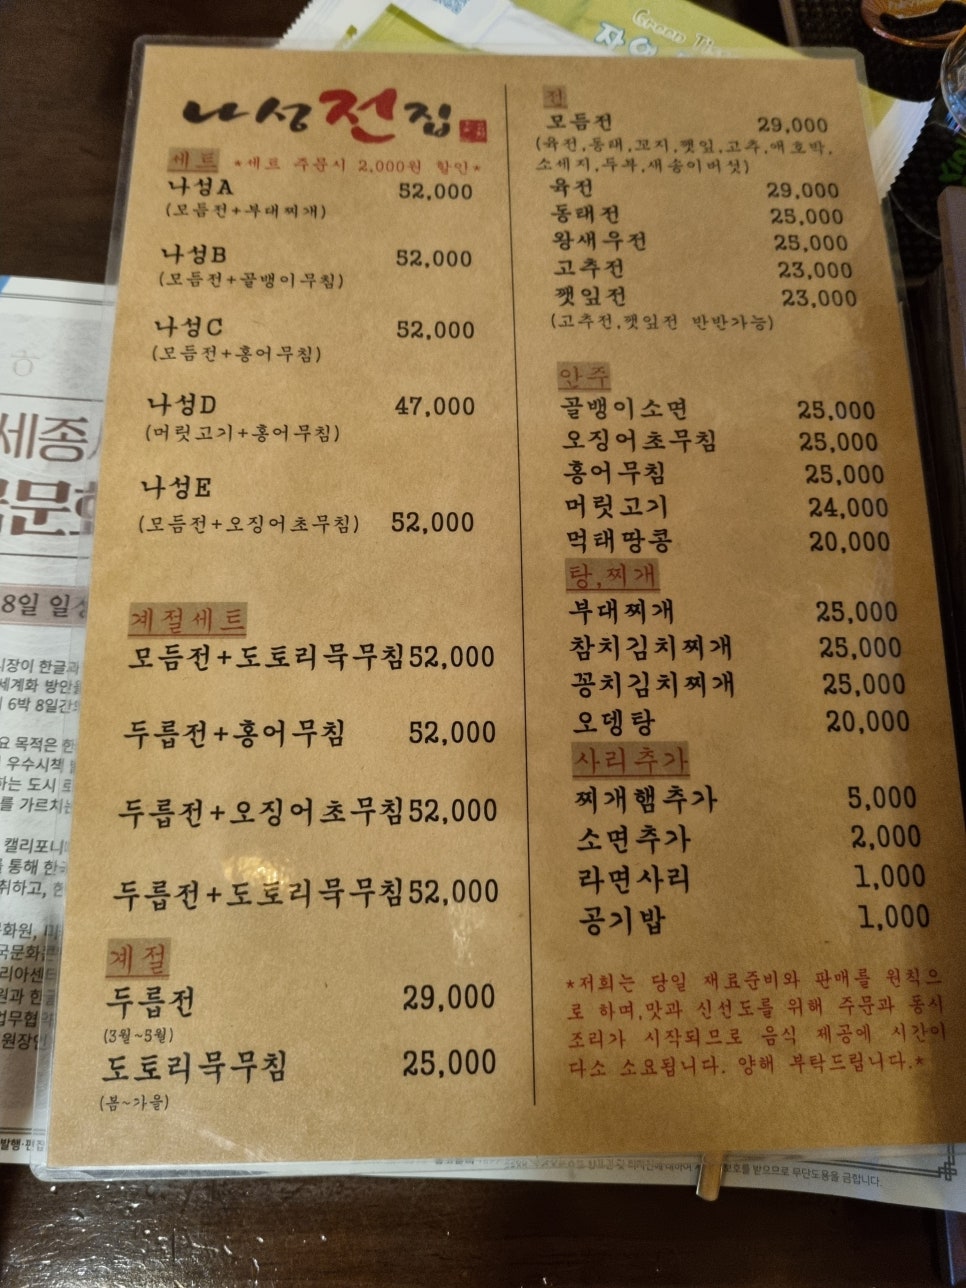 나성전집
세트 *세트 주문시 2,000원 할인*
나성A 52,000
(모듬전+부대찌개)
나성B 52,000
(모듬전+골뱅이무침)
나성C 52,000
(모듬전+홍어무침)
나성D 47,000
(머릿고기+홍어무침)
나성E
(모듬전+오징어초무침) 52,000
계절세트
모듬전+도토리묵무침 52,000
두릅전+홍어무침 52,000
두릅전+오징어초무침 52,000
두릅전+도토리묵무침 52,000
계절
두릅전 29,000
(3월~5월)
도토리묵무침 25,000
(봄~가을)
전
모듬전 29,000
(육전,동태,꼬지,깻잎,고추,애호박,
소세지,두부,새송이버섯)
육전 29,000
동태전 25,000
왕새우전 25,000
고추전 23,000
깻잎전 23,000
(고추전,깻잎전 반반가능)
안주
골뱅이소면 25,000
오징어초무침 25,000
홍어무침 25,000
머릿고기 24,000
먹태땅콩 20,000
탕,찌개
부대찌개 25,000
참치김치찌개 25,000
꽁치김치찌개 25,000
오뎅탕 20,000
사리추가
찌개햄추가 5,000
소면추가 2,000
라면사리 1,000
공기밥 1,000
*저희는 당일 재료준비와 판매를 원칙으
로 하며,맛과 신선도를 위해 주문과 동시
조리가 시작되므로 음식 제공에 시간이
다소 소요됩니다. 양해 부탁드립니다.*
세종
8일 일정
장이 한글과
세계화 방안을
6박 8일간의
요 목적은 한
우수시책
하는 도시
를 가르치는
캘리포니
통해 한국
취하고, 한
화원, 미
국문화콘
리아센
원과 한글
업무협
원장인
발행·편집
무단도용을 금합니다.